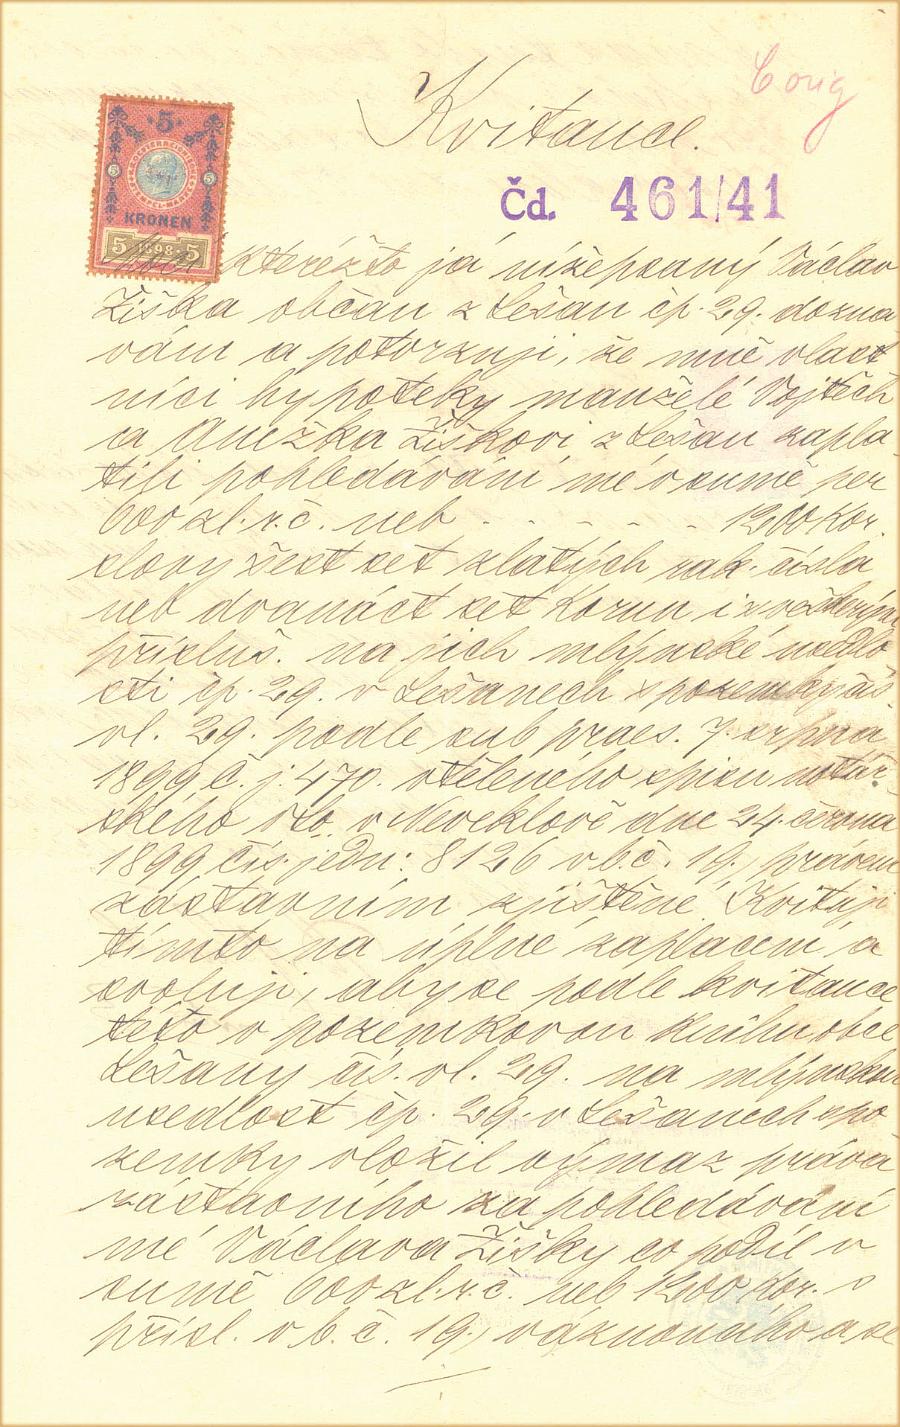 C orig
Kvitance.
Čd. 461/41
5
KRONEN
5 1898 5
kteréžto já nížepsaný Václav
Žiška občan z Lešan čp. 29. dozná
vám a potvrzuji, že mně vlast
níci hypoteky manželé Vojtěch
a Anežka Žiškovi z Lešan zapla
tili pohledávání mé v sumě per
600 zl. r. č. neb - - - - - - 1200 Kor.
slovy šest set zlatých rak. čísla
neb dvanáct set Korun i s veškerým
přísluš. na jich mlýnské usedlo
sti čp. 29. v Lešanech s pozemky čís.
vl. 29. podle sub praes. 7. srpna
1899 č. j. 470. sděleného spisu notář-
ského v Neveklově dne 24. června
1899 čís. jedn: 8126 v b. č. 19., právem
zástavním zjištěné. Kvituji
tímto na úplné zaplacení a
svoluji, aby se podle kvitance
této v pozemkovou knihu obce
Lešany čís. vl. 29. na mlýnskou
usedlost čp. 29. v Lešanech s po
zemky vložil výmaz práva
zástavního za pohledávání
mé Václava Žišky co podíl v
sumě 600 zl. r. č. neb 1200 Kor. s
přísl. v b. č. 19., váznoucího a se